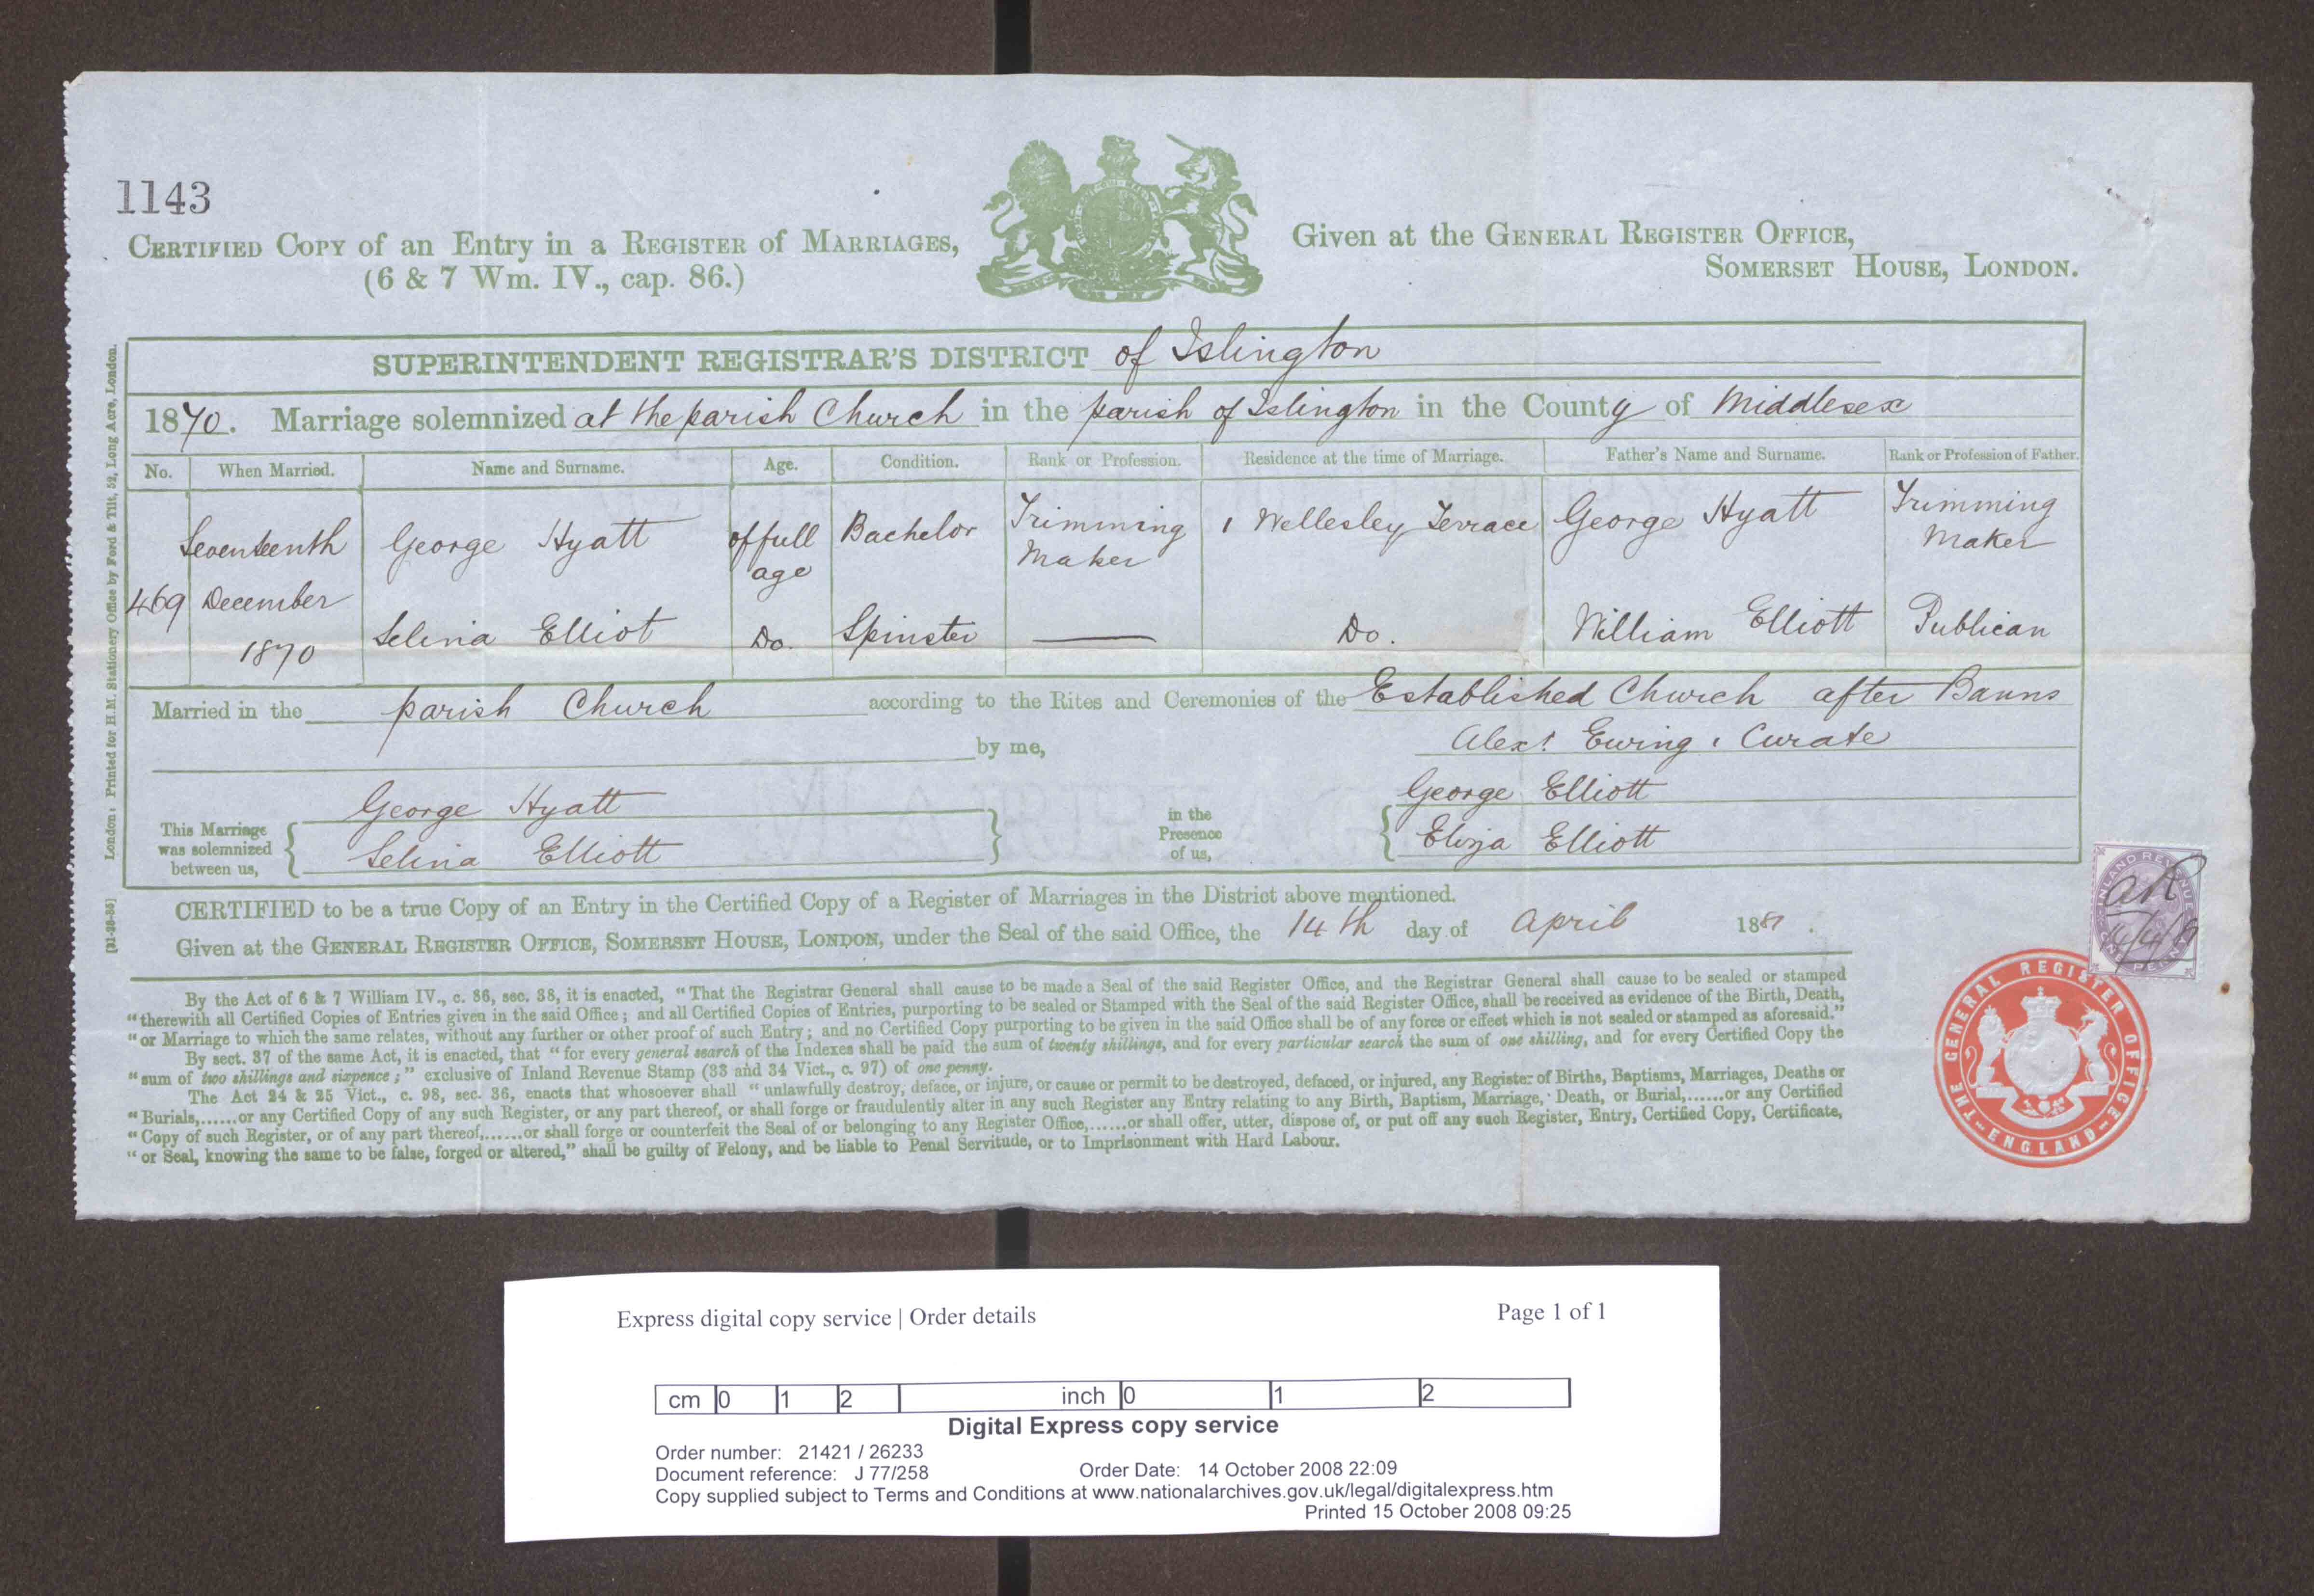 1143
CERTIFIED COPY of an Entry in a REGISTER of MARRIAGES,
(6 & 7 Wm. IV., cap. 86.)
Given at the GENERAL REGISTER OFFICE,
SOMERSET HOUSE, LONDON.
SUPERINTENDENT REGISTRAR'S DISTRICT of Islington
1870. Marriage solemnized at the parish Church in the parish of Islington in the County of Middlesex
No. When Married. Name and Surname. Age. Condition. Rank or Profession. Residence at the time of Marriage. Father's Name and Surname. Rank or Profession of Father.
469 Seventeenth December 1870
George Hyatt of full age Bachelor Trimming Maker 1 Wellesley Terrace George Hyatt Trimming Maker
Selina Elliot Do. Spinster Do. William Elliott Publican
Married in the parish Church according to the Rites and Ceremonies of the Established Church after Banns
by me, Alexr. Ewing, Curate
This Marriage was solemnized between us,
George Hyatt
Selina Elliott
in the Presence of us,
George Elliott
Eliza Elliott
CERTIFIED to be a true Copy of an Entry in the Certified Copy of a Register of Marriages in the District above mentioned.
Given at the GENERAL REGISTER OFFICE, SOMERSET HOUSE, LONDON, under the Seal of the said Office, the 14th day of April 1881.
By the Act of 6 & 7 William IV., c. 86, sec. 38, it is enacted, "That the Registrar General shall cause to be made a Seal of the said Register Office, and the Registrar General shall cause to be sealed or stamped
"therewith all Certified Copies of Entries given in the said Office; and all Certified Copies of Entries, purporting to be sealed or Stamped with the Seal of the said Register Office, shall be received as evidence of the Birth, Death,
"or Marriage to which the same relates, without any further or other proof of such Entry; and no Certified Copy purporting to be given in the said Office shall be of any force or effect which is not sealed or stamped as aforesaid."
By sect. 37 of the same Act, it is enacted, that "for every general search of the Indexes shall be paid the sum of twenty shillings, and for every particular search the sum of one shilling, and for every Certified Copy the
"sum of two shillings and sixpence;" exclusive of Inland Revenue Stamp (33 and 34 Vict., c. 97) of one penny.
The Act 24 & 25 Vict., c. 98, sec. 36, enacts that whosoever shall "unlawfully destroy, deface, or injure, or cause or permit to be destroyed, defaced, or injured, any Register of Births, Baptisms, Marriages, Deaths or
"Burials,......or any Certified Copy of any such Register, or any part thereof, or shall forge or fraudulently alter in any such Register any Entry relating to any Birth, Baptism, Marriage, Death, or Burial,......or any Certified
"Copy of such Register, or of any part thereof,......or shall forge or counterfeit the Seal of or belonging to any Register Office,......or shall offer, utter, dispose of, or put off any such Register, Entry, Certified Copy, Certificate,
"or Seal, knowing the same to be false, forged or altered," shall be guilty of Felony, and be liable to Penal Servitude, or to Imprisonment with Hard Labour.
London: Printed for H.M. Stationery Office by Ford & Tilt, 52, Long Acre, London.
INLAND REVENUE
ONE PENNY
THE GENERAL REGISTER OFFICE
ENGLAND
Express digital copy service | Order details Page 1 of 1
cm 0 1 2 inch 0 1 2
Digital Express copy service
Order number: 21421 / 26233
Document reference: J 77/258 Order Date: 14 October 2008 22:09
Copy supplied subject to Terms and Conditions at www.nationalarchives.gov.uk/legal/digitalexpress.htm
Printed 15 October 2008 09:25